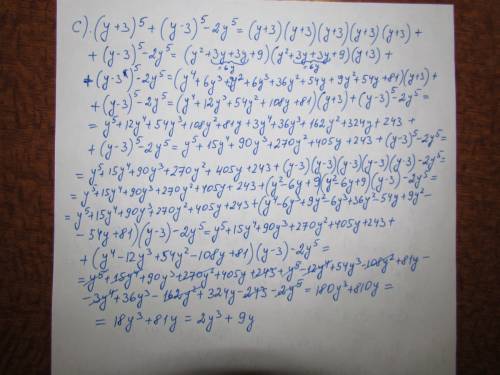 c). (y+3)⁵ + (y-3)⁵ - 2y⁵ = (y+3)(y+3)(y+3)(y+3)(y+3) +
+ (y-3)⁵ - 2y⁵ = (y² + 3y + 3y + 9)(y² + 3y + 3y + 9)(y+3) +
+6y +6y
+ (y-3)⁵ - 2y⁵ = (y⁴ + 6y³ + 9y² + 6y³ + 36y² + 54y + 9y² + 54y + 81)(y+3) +
+ (y-3)⁵ - 2y⁵ = (y⁴ + 12y³ + 54y² + 108y + 81)(y+3) + (y-3)⁵ - 2y⁵ =
= y⁵ + 12y⁴ + 54y³ + 108y² + 81y + 3y⁴ + 36y³ + 162y² + 324y + 243 +
+ (y-3)⁵ - 2y⁵ = y⁵ + 15y⁴ + 90y³ + 270y² + 405y + 243 + (y-3)⁵ - 2y⁵ =
= y⁵ + 15y⁴ + 90y³ + 270y² + 405y + 243 + (y-3)(y-3)(y-3)(y-3)(y-3) - 2y⁵ =
= y⁵ + 15y⁴ + 90y³ + 270y² + 405y + 243 + (y² - 6y + 9)(y² - 6y + 9)(y-3) - 2y⁵ =
= y⁵ + 15y⁴ + 90y³ + 270y² + 405y + 243 + (y⁴ - 6y³ + 9y² - 6y³ + 36y² - 54y + 9y² -
- 54y + 81)(y-3) - 2y⁵ = y⁵ + 15y⁴ + 90y³ + 270y² + 405y + 243 +
+ (y⁴ - 12y³ + 54y² - 108y + 81)(y-3) - 2y⁵ =
= y⁵ + 15y⁴ + 90y³ + 270y² + 405y + 243 + y⁵ - 12y⁴ + 54y³ - 108y² + 81y -
- 3y⁴ + 36y³ - 162y² + 324y - 243 - 2y⁵ = 180y³ + 810y =
= 18y³ + 81y = 2y³ + 9y